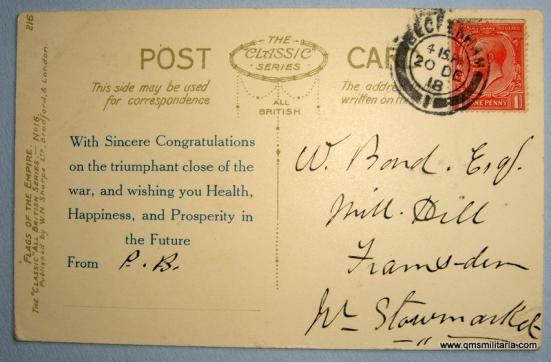 216
FLAGS OF THE EMPIRE. — No 16.
THE "CLASSIC" ALL BRITISH SERIES.
Published by W.N. Sharpe Ltd. Bradford, & London.
POST CAR
THE
CLASSIC
SERIES
ALL
BRITISH
This side may be used
for correspondence
The addre
written on th
4 15 PM
20 DE
18
NE PENNY
With Sincere Congratulations
on the triumphant close of the
war, and wishing you Health,
Happiness, and Prosperity in
the Future
From P. B.
W. Bond. Esq.
Mill Hill
Framsden
Nr Stowmarket
www.qmsmilitaria.com